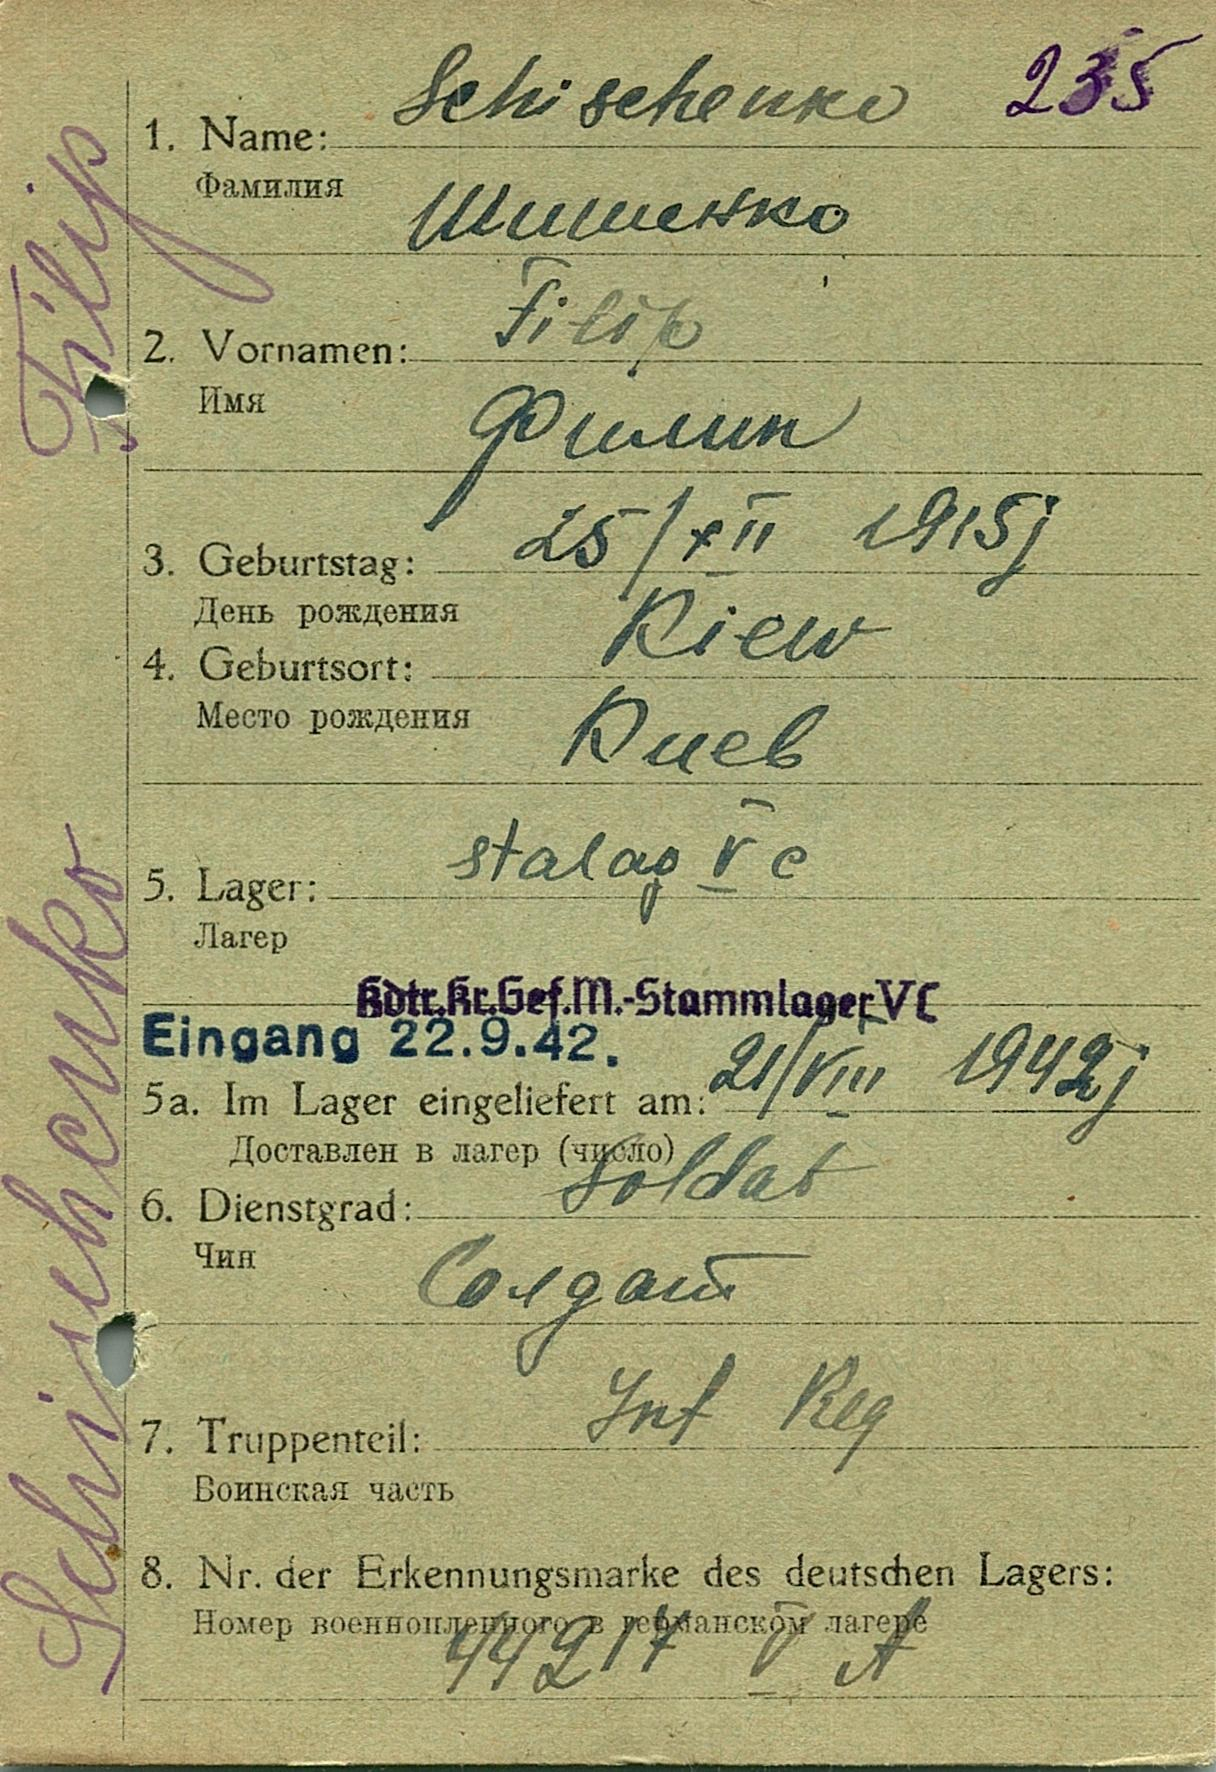 235
Schischenko
1. Name:
Фамилия
Шишенко
Filip
2. Vornamen:
Имя
Филип
25/XII 1915j
3. Geburtstag:
День рождения
Kiew
4. Geburtsort:
Место рождения
Киев
stalag V c
5. Lager:
Лагер
Kdtr.Kr.Gef.M.-Stammlager V C
Eingang 22.9.42.
5a. Im Lager eingeliefert am: 21/VIII 1942j
Доставлен в лагер (число)
Soldat
6. Dienstgrad:
Чин
Солдат
Inf Reg
7. Truppenteil:
Воинская часть
8. Nr. der Erkennungsmarke des deutschen Lagers:
Номер военнопленного в германском лагере
44217 V A
Schischenko Filip